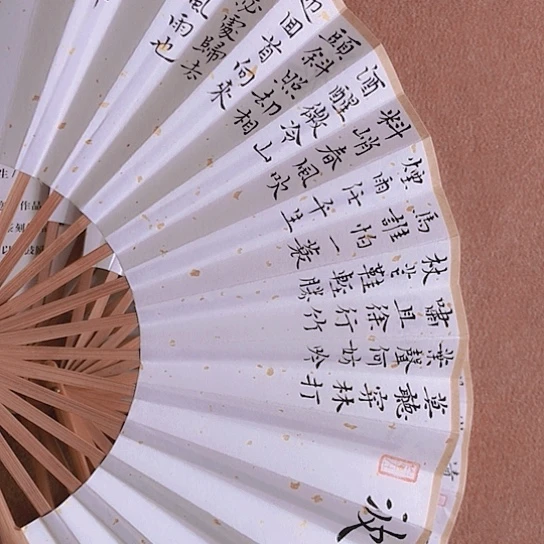 莫聽穿林打
葉聲何妨吟
嘯且徐行竹
杖芒鞋輕勝
馬誰怕一蓑
煙雨任平生
料峭春風吹
酒醒微冷山
頭斜照却相
迎回首向來
處歸去
風雨也
作品